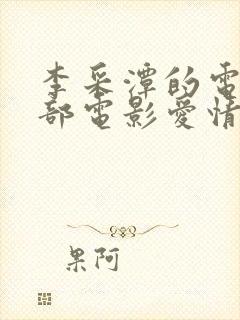 李采潭的電
部電影愛情
果阿